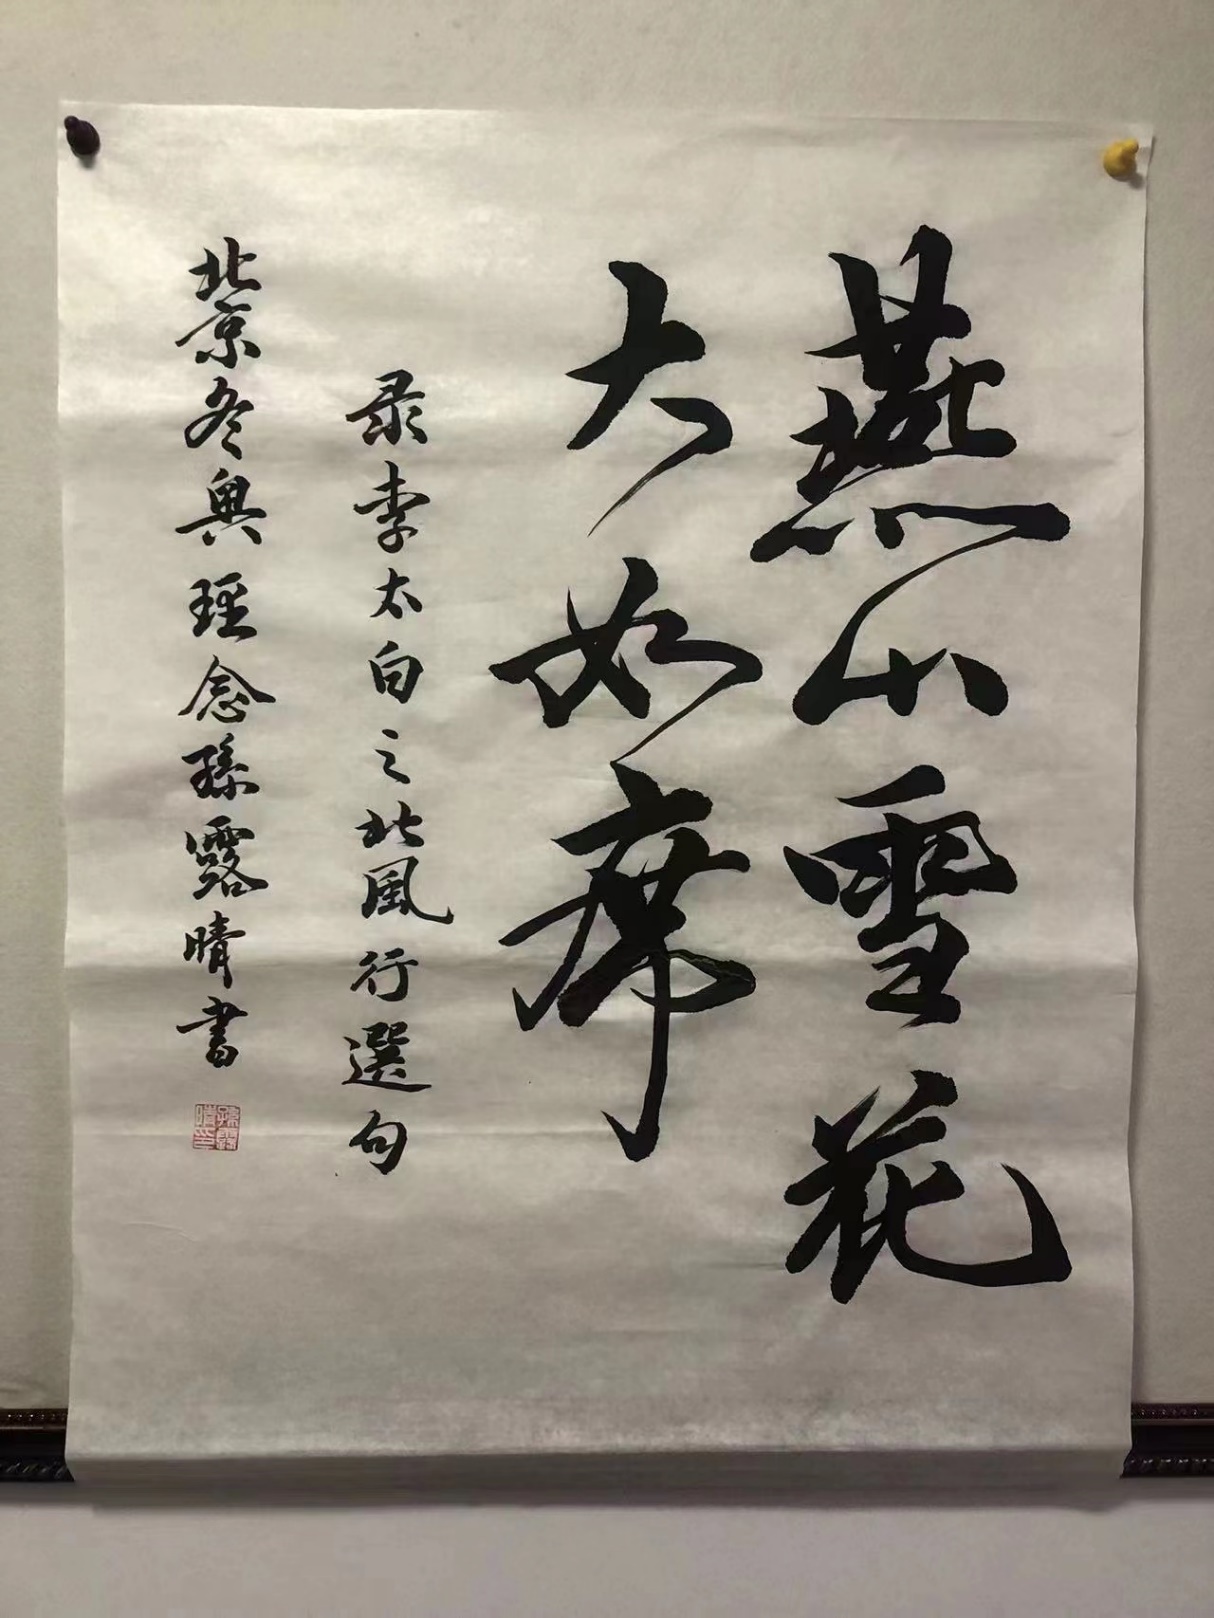 燕山雪花
大如席
录李太白之北風行選句
北京冬奥理念孫露晴書
孫露晴印